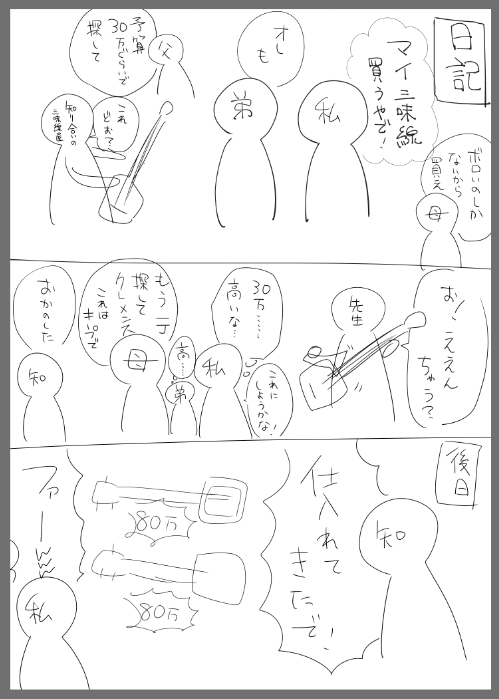 日記
ボロいのしか
ないから
買え
母
マイ三味線
買うやで!
私
オレ
も
弟
父
予算
30万ぐらいで
探して
これ
どお?
知り合いの
三味線屋
お!ええん
ちゃう?
先生
これに
しようかな!
30万……
高いな…
私
高…
弟
もう一丁
探して
クレメンス
これは
キープで
母
おかのした
知
後日
知
仕入れて
きたで!
80万
80万
ファーwww
私